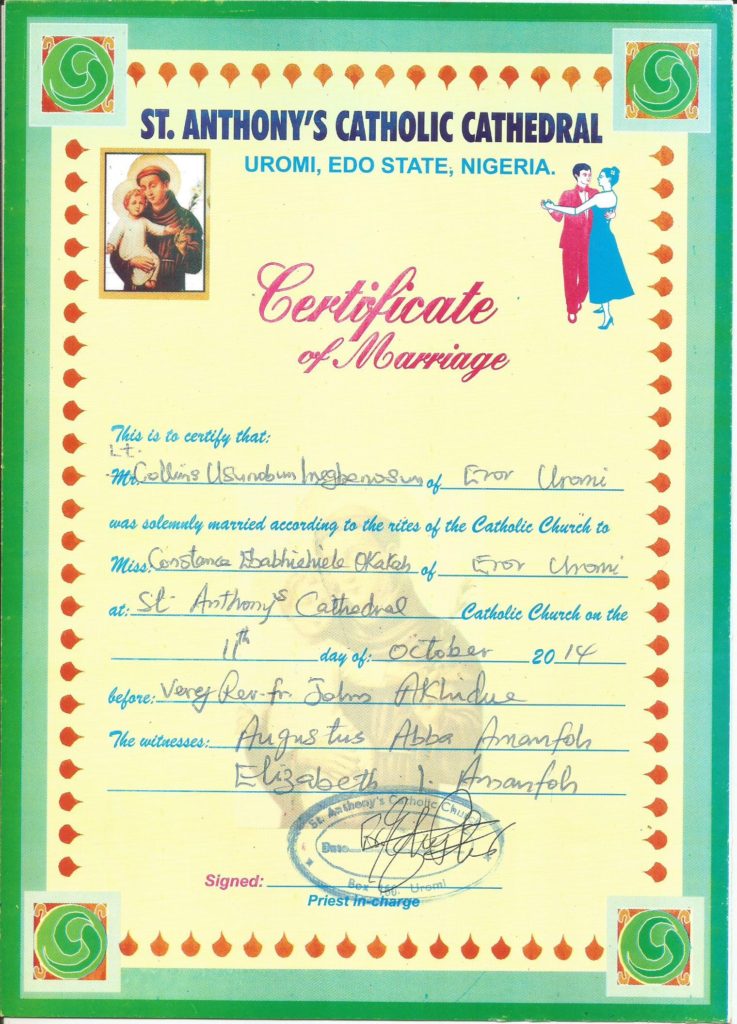 ST. ANTHONY'S CATHOLIC CATHEDRAL
UROMI, EDO STATE, NIGERIA.
Certificate
of Marriage
This is to certify that:
Lt.
Mr. Collins Usunobun Inegbenosun of Eror Uromi
was solemnly married according to the rites of the Catholic Church to
Miss. Constance Ebabhiehiele Okakah of Eror Uromi
at: St Anthony's Cathedral Catholic Church on the
11th day of: October 2014
before: Very Rev. fr. John Akhidue
The witnesses: Augustus Abba Amanfoh
Elizabeth I. Amanfoh
St. Anthony's Catholic Church
Date
Box 166. Uromi
Signed:
Priest in-charge